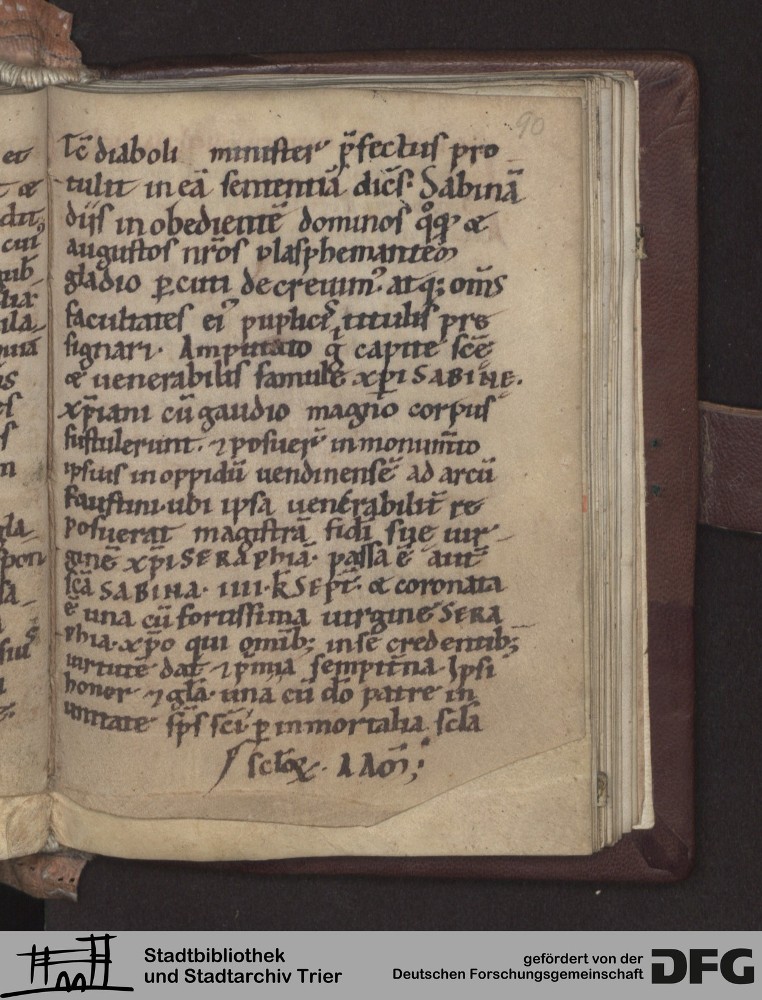 90
Tc̄ diaboli minister p̄fectus pro
tulit in eā sententiā dicēs. Sabinā
diis inobedientē dominos q̊q; &
augustos nr̄os blasphemantem
gladio p̱cuti decreuim᾽. atq; om̄s
facultates ei᾽ puplicis titulis pre
signari. Amputato g̊ capite sc̄e
& uenerabilis famule xp̄i SABINE.
xp̄iani cū gaudio magno corpus
sustulerunt. ⁊ posuer̄ in monum̄to
ipsius in oppidū uendinensē ad arcū
faustini. ubi ipsa uenerabilit̄ re
posuerat magistrā fidi sue uir
ginē xp̄i SERAPhiā. passa ē aut̄
sc̄a SABINA. IIII. k̄ SEPT̄. & coronata
ē una cū fortissima uirgine SERA
Phia. xp̄o qui omīb; in se credentib;
uirtutē dat ⁊ p̄mia sempit̄na. Ipsi
honor ⁊ gl̄a. una cū dō patre in
unitate sp̄s sc̄i. p̱ inmortalia sc̄la
sc̄loꝝ. AAΩΙ;
et
Stadtbibliothek
und Stadtarchiv Trier
gefördert von der
Deutschen Forschungsgemeinschaft
DFG